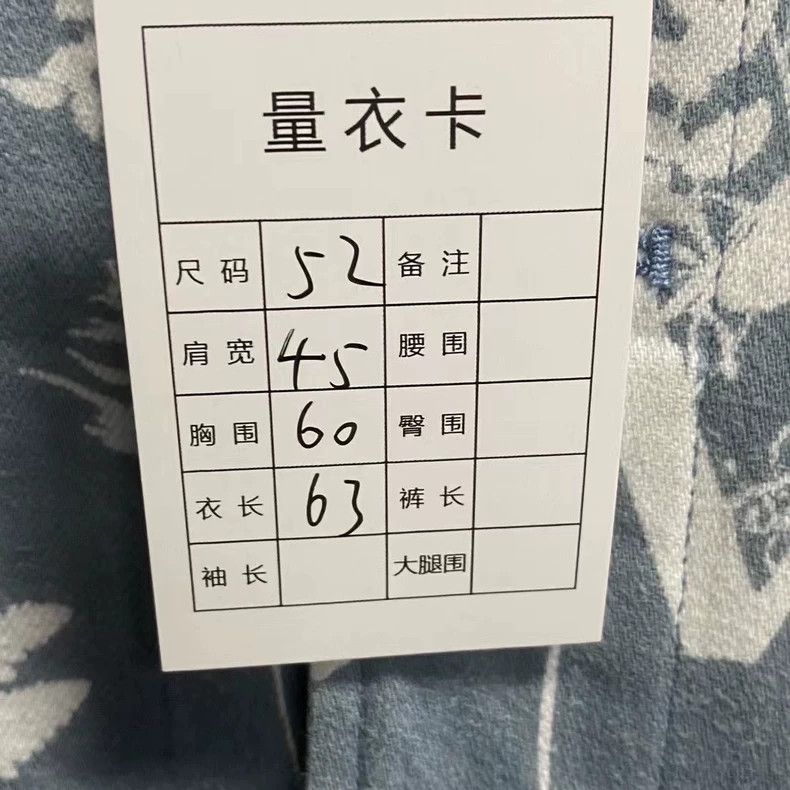 量衣卡
尺码 52 备注
肩宽 45 腰围
胸围 60 臀围
衣长 63 裤长
袖长 大腿围